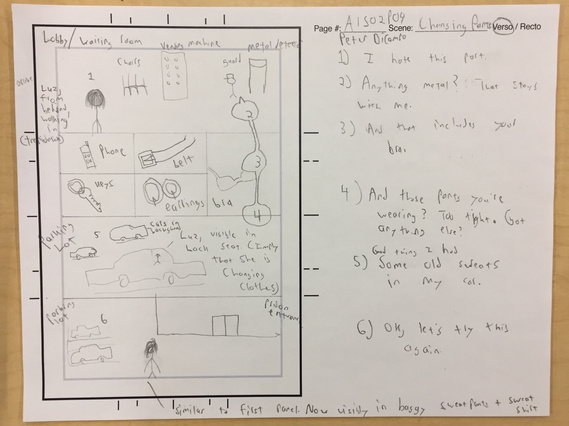 Page #: A1S02P09 Scene: Changing Pants Verso / Recto
Peter DiCampo
Lobby/ Waiting room
Chairs
Vending machine
metal detector
guard
1
Luz, from behind walking in
2
3
4
Phone
belt
Keys
earrings
bra
Parking lot
5
cars in background
Luz, visible in back seat (Imply that she is changing clothes)
Parking lot
6
Prison entrance
Similar to first panel. Now visibly in baggy sweatpants + sweat shirt
1) I hate this part.
2) Anything metal? That stays
with me.
3) And that includes your
bra.
4) And those pants you're
wearing? Too tight. Got
anything else?
Good thing I had
5) Some old sweats
in my car.
6) OK, let's try this
again.